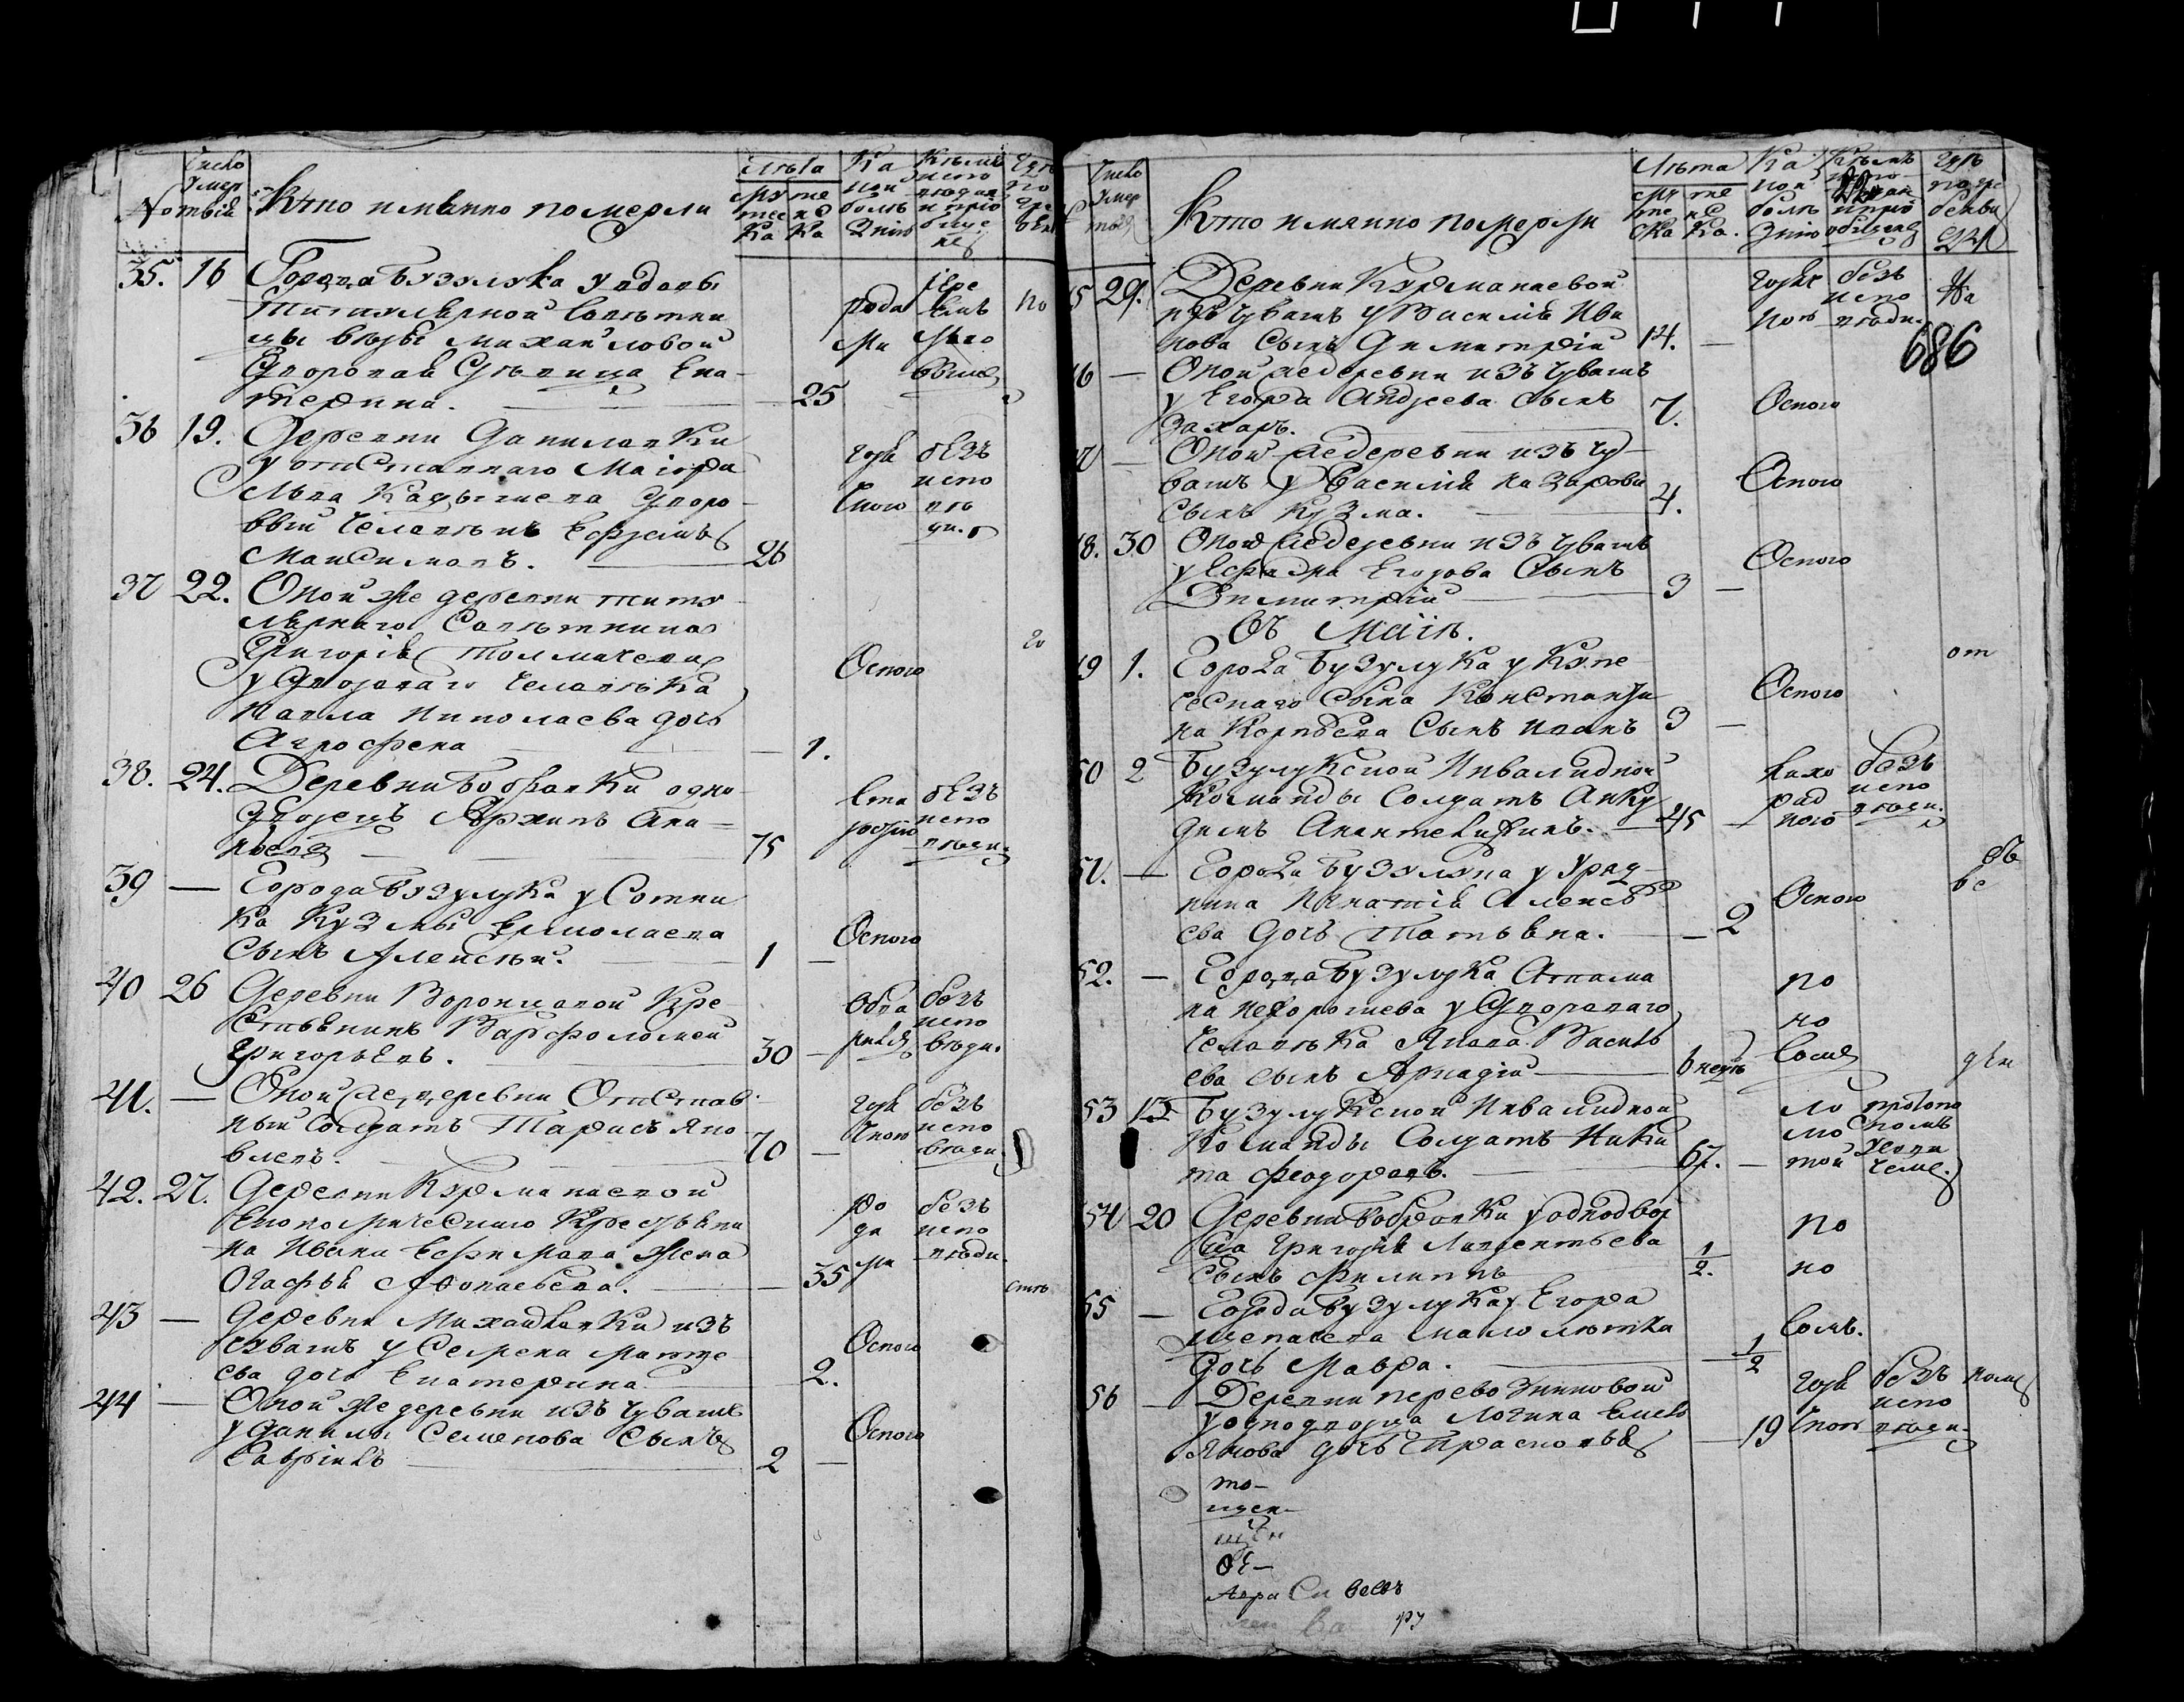 №
Число умертвій
Кто имянно померли
Лѣта
мужеска
женска
Какою болѣзнію
Кѣмъ исповѣданы и пріобщены
Гдѣ погребены
35. 16 Города Бузулука у вдовы
Титулярной Совѣтни
цы Вѣры Михайловой
Дворовая Дѣвица Ека
терина. 25
рода
ми
по
36 19. Деревни Даниловки
у отставнаго Маіора
Льва Кадышева Дворо
вый Человѣкъ Ефремъ
Максимовъ. 26
горя
чкою
безъ
испо
вѣ
ди.
37 22. Оной же деревни титу
лярнаго Совѣтника
Григорія Толмачева
у Двороваго Человѣка
Павла Николаева дочь
Агрофена 1.
Оспою
го
38. 24. Деревни Бобровки одно
дворецъ Архипъ
75
ста
ростію
безъ
испо
вѣди.
39 — Города Бузулука у Сотни
ка Кузмы Ермолаева
Сынъ Алексѣй. 1 —
Оспою
40 26 Деревни Воронцовой Кре
стьянинъ Варфоломей
Григорьевъ. 30 —
безъ
испо
вѣди.
41. — Оной же деревни Отстав
ный Солдатъ Тарасъ Яко
влевъ. 70 —
горя
чкою
безъ
испо
вѣди.
42. 27. Деревни Курманаевой
Экономическаго Крестьяни
на Ивана Ефимова жена
Огафья Афонасьева. — 35
ро
да
ми
безъ
испо
вѣди.
стъ
43 — Деревни Михайловки изъ
чувашъ у Семена Матве
ева дочь Екатерина 2.
Оспою
44 — Оной же деревни изъ чувашъ
у Данилы Семенова Сынъ
Гавріилъ 2 —
Оспою
Число умертвій
Кто имянно померли
Лѣта
мужеска
женска.
Какою болѣзнію
Кѣмъ исповѣданы и пріобщены
Гдѣ погребены
686
5 29. Деревни Курманаевой
изъ чувашъ у Василія Ива
нова Сынъ Димитрій 14. —
горяч
кою
безъ
испо
вѣди.
На
46 — Оной же деревни изъ чувашъ
у Егора Андреева сынъ
Захаръ. 7.
Оспою
47 — Оной же деревни изъ чу
вашъ у Василія Назарова
Сынъ Кузма. 4.
Оспою
48. 30 Оной же деревни изъ чувашъ
у Егорова Сынъ
Димитрій 3 —
Оспою
Въ Маіѣ.
49 1. Города Бузулука у Купе
ческаго Сына Константи
на Корнѣева Сынъ Иванъ 3 —
Оспою
от
50 2 Бузулукской Инвалидной
Команды Солдатъ Анку
динъ 45 —
лихо
рад
кою
безъ
испо
вѣди.
51. — Города Бузулука у Уряд
ника Игнатія Алексѣ
ева Дочь Татьяна. — 2
Оспою
52. — Города Бузулука Атама
на Нехорошева у Двороваго
Человѣка Якова Василь
ева сынъ Аркадій 6 недѣль
по
но
сомъ
53 13 Бузулукской Инвалидной
Команды Солдатъ Ники
та Феодоровъ. 67. —
ло
мо
той
54 20 Деревни Бобровки у однодвор
ца Григорія Лаврентьева
Сынъ Филиппъ 1/2.
по
но
55 — Города Бузулука у Егора
малолѣтка
дочь Мавра. — 1/2
сомъ.
56 — Деревни Перевозинковой
у однодворца Логина Емель
янова дочь Прасковья — 19
горя
чкою
безъ
испо
вѣди.